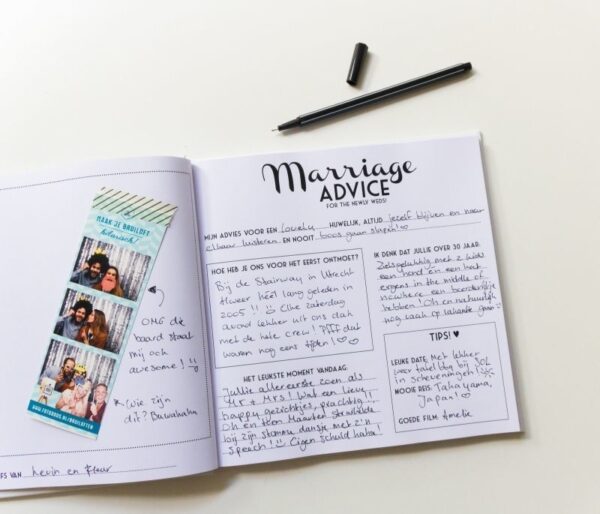 MAAK JE BRUILOFT
hilarisch!
OMG die
baard staat
mij ook
awesome!
(wie zijn
dit? Buwahaha
ES VAN Kevin en Fleur
Marriage
ADVICE
FOR THE NEWLY WEDS!
MIJN ADVIES VOOR EEN lovely HUWELIJK, ALTIJD jezelf blijven en naar
elkaar luisteren EN NOOIT boos gaan slapen!
HOE HEB JE ONS VOOR HET EERST ONTMOET?
Bij de Stairway in Utrecht
heel lang geleden in
2005!! Elke zaterdag
avond lekker uit ons dak
met de hele crew! Pfff dat
waren nog eens tijden!
HET LEUKSTE MOMENT VANDAAG
Jullie allereerste zoen als
Mr. & Mrs! Wat een lieve
happy gezichtjes, prachtig!!
Oh en toen Maarten straalde
bij zijn stomme dansje met z'n
speech! Eigen schuld haha!
IK DENK DAT JULLIE OVER 30 JAAR:
Zielsgelukkig met 2 kids
een hond en een kat
ergens in the middle of
nowhere een boerderijtje
hebben! Oh en natuurlijk
nog vaak op vakantie gaan
TIPS!
LEUKE DATE: Met lekker
weer tafel bij SOL
in scheveningen!
MOOIE REIS: Takayama,
Japan!
GOEDE FILM: Amelie